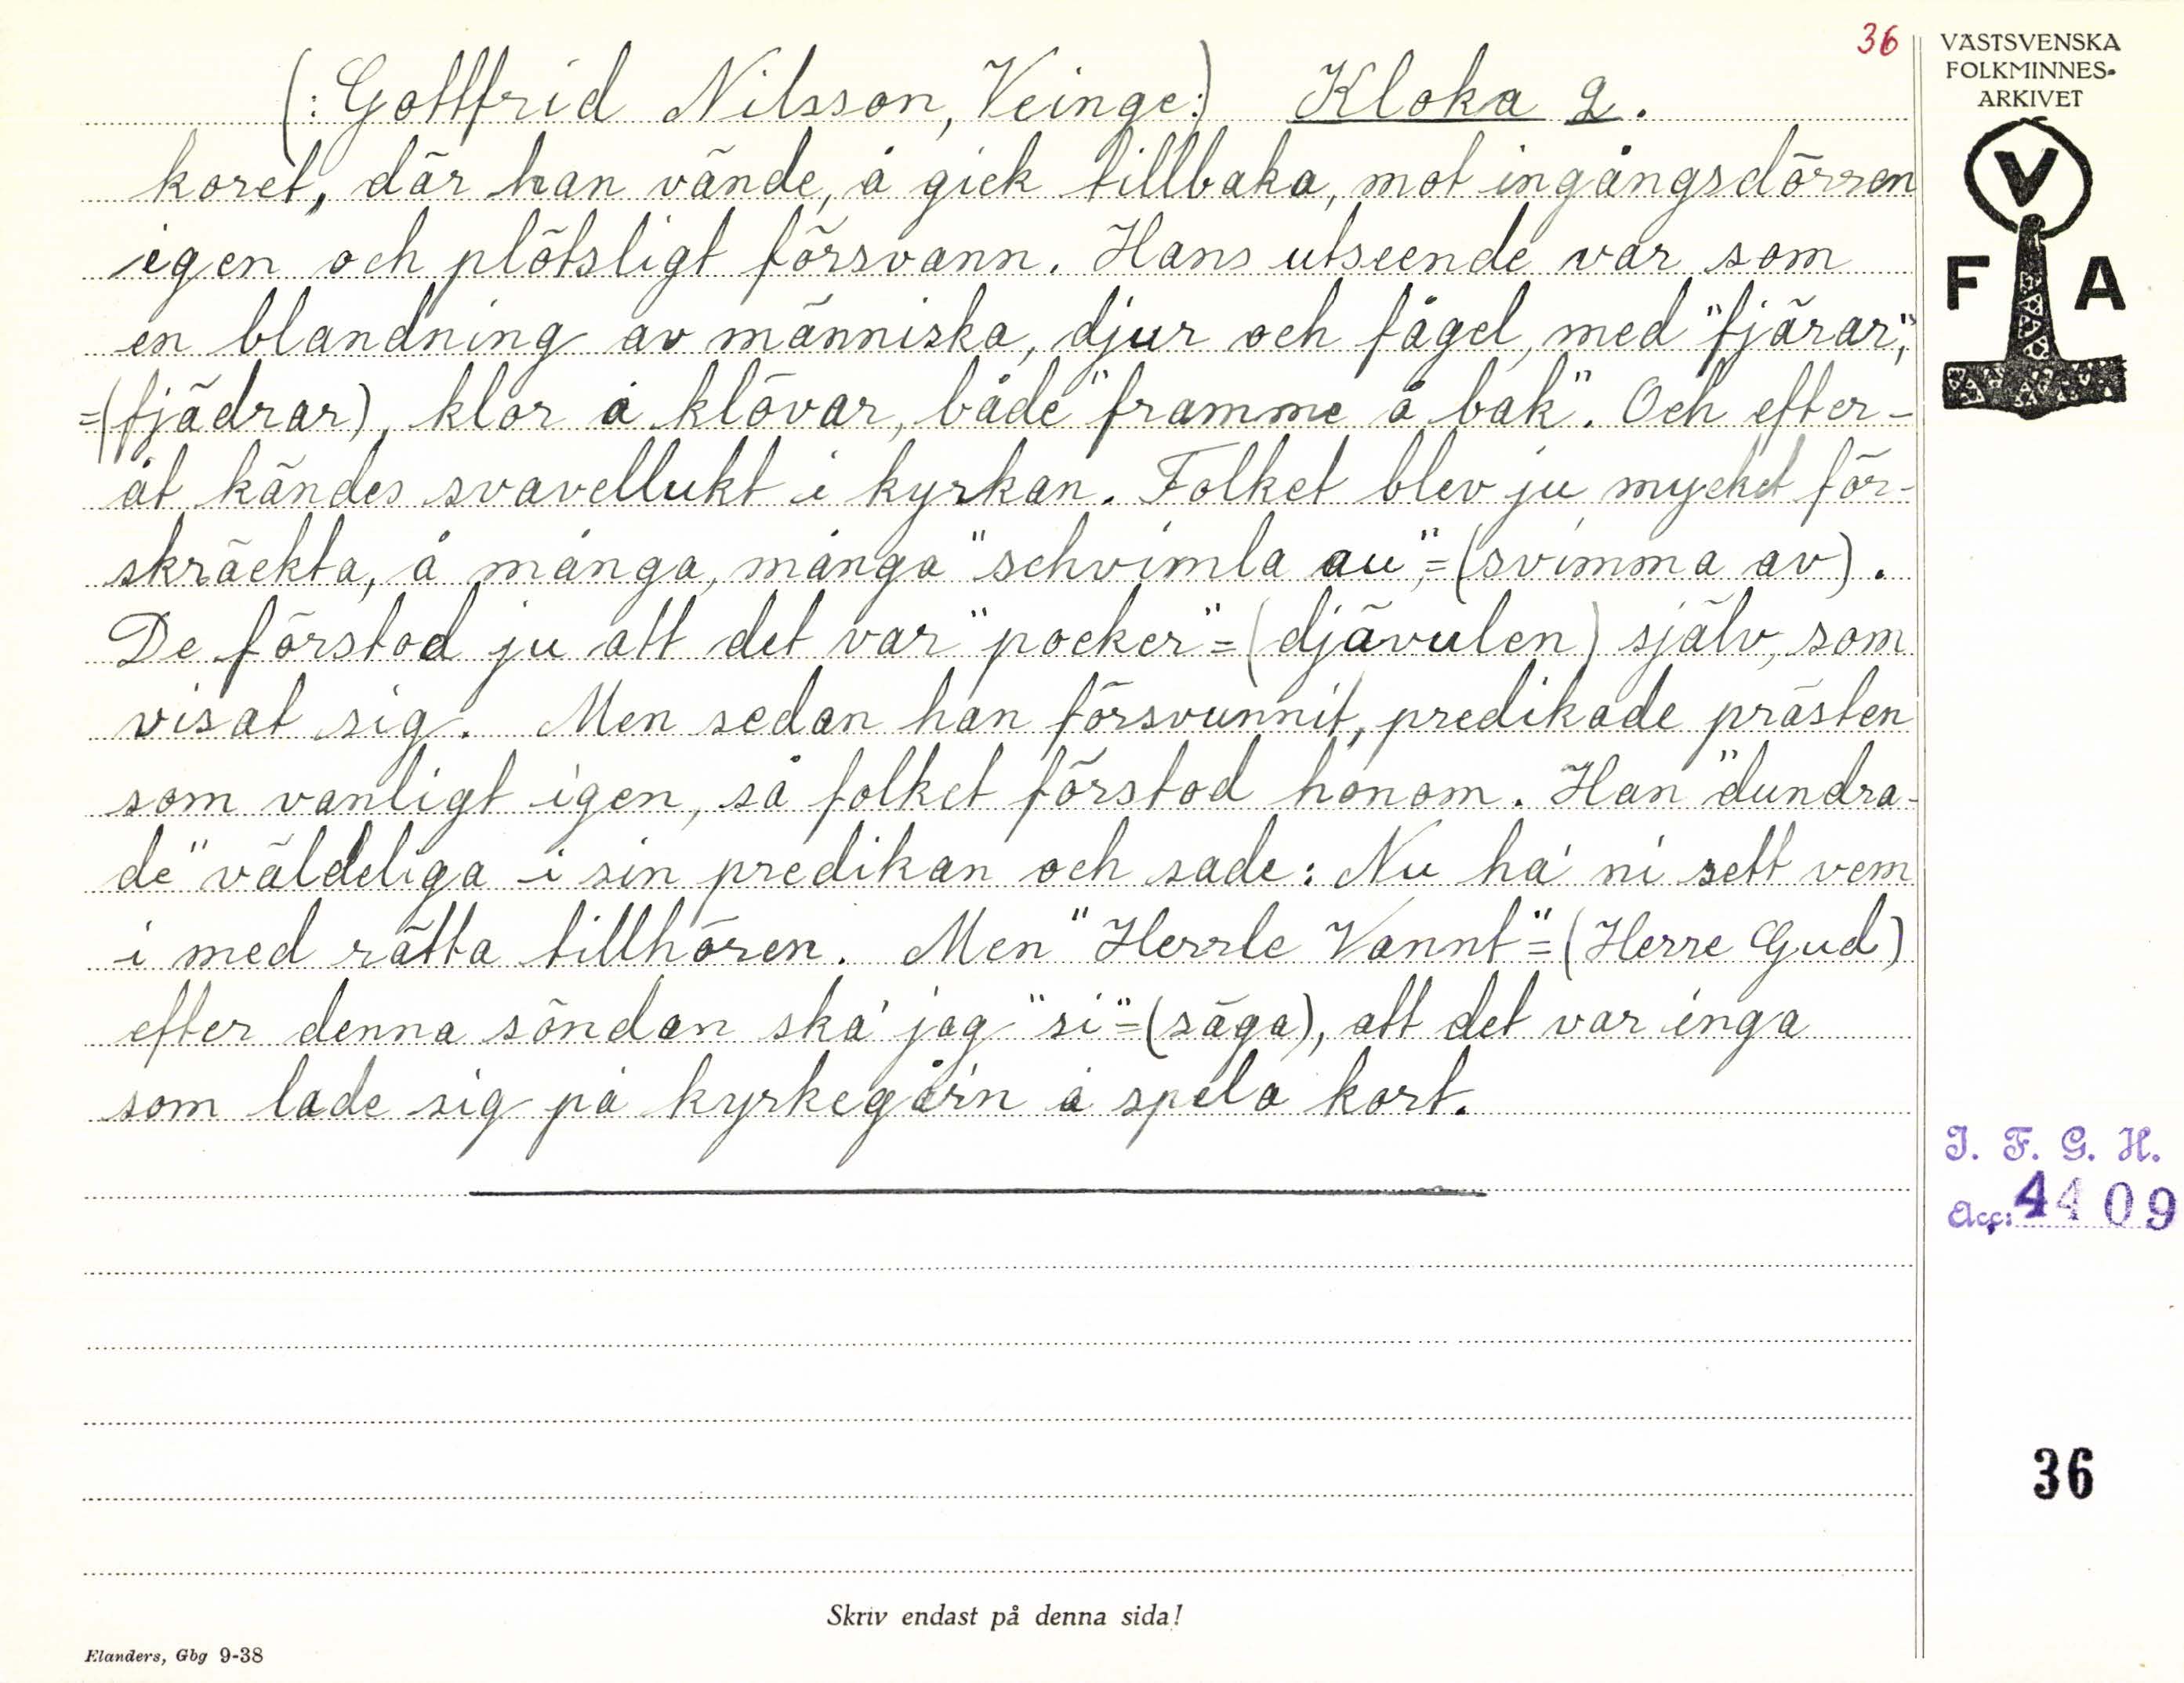 36
(: Gottfrid Nilsson, Veinge:) Kloka 2.
koret, där han vände, å gick tillbaka, mot ingångsdörren
igen och plötsligt försvann. Hans utseende var som
en blandning av människa, djur och fågel, med "fjärar",
=(fjädrar), klor å klövar, både "framme å bak". Och efter-
åt kändes svavellukt i kyrkan. Folket blev ju mycket för-
skräckta, å många, många "schvimla au", =(svimma av).
De förstod ju att det var "pocker" =(djävulen) själv, som
visat sig. Men sedan han försvunnit, predikade prästen
som vanligt igen, så folket förstod honom. Han "dundra-
de" väldeliga i sin predikan och sade: Nu ha' ni sett vem
i med rätta tillhören. Men "Herrle Vannt" =(Herre Gud)
efter denna söndan ska' jag "si" =(säga), att det var inga
som lade sig på kyrkegår'n å spela kort.
VÄSTSVENSKA
FOLKMINNES-
ARKIVET
V
F A
I. F. G. H.
Acc: 4409
36
Skriv endast på denna sida!
Elanders, Gbg 9-38